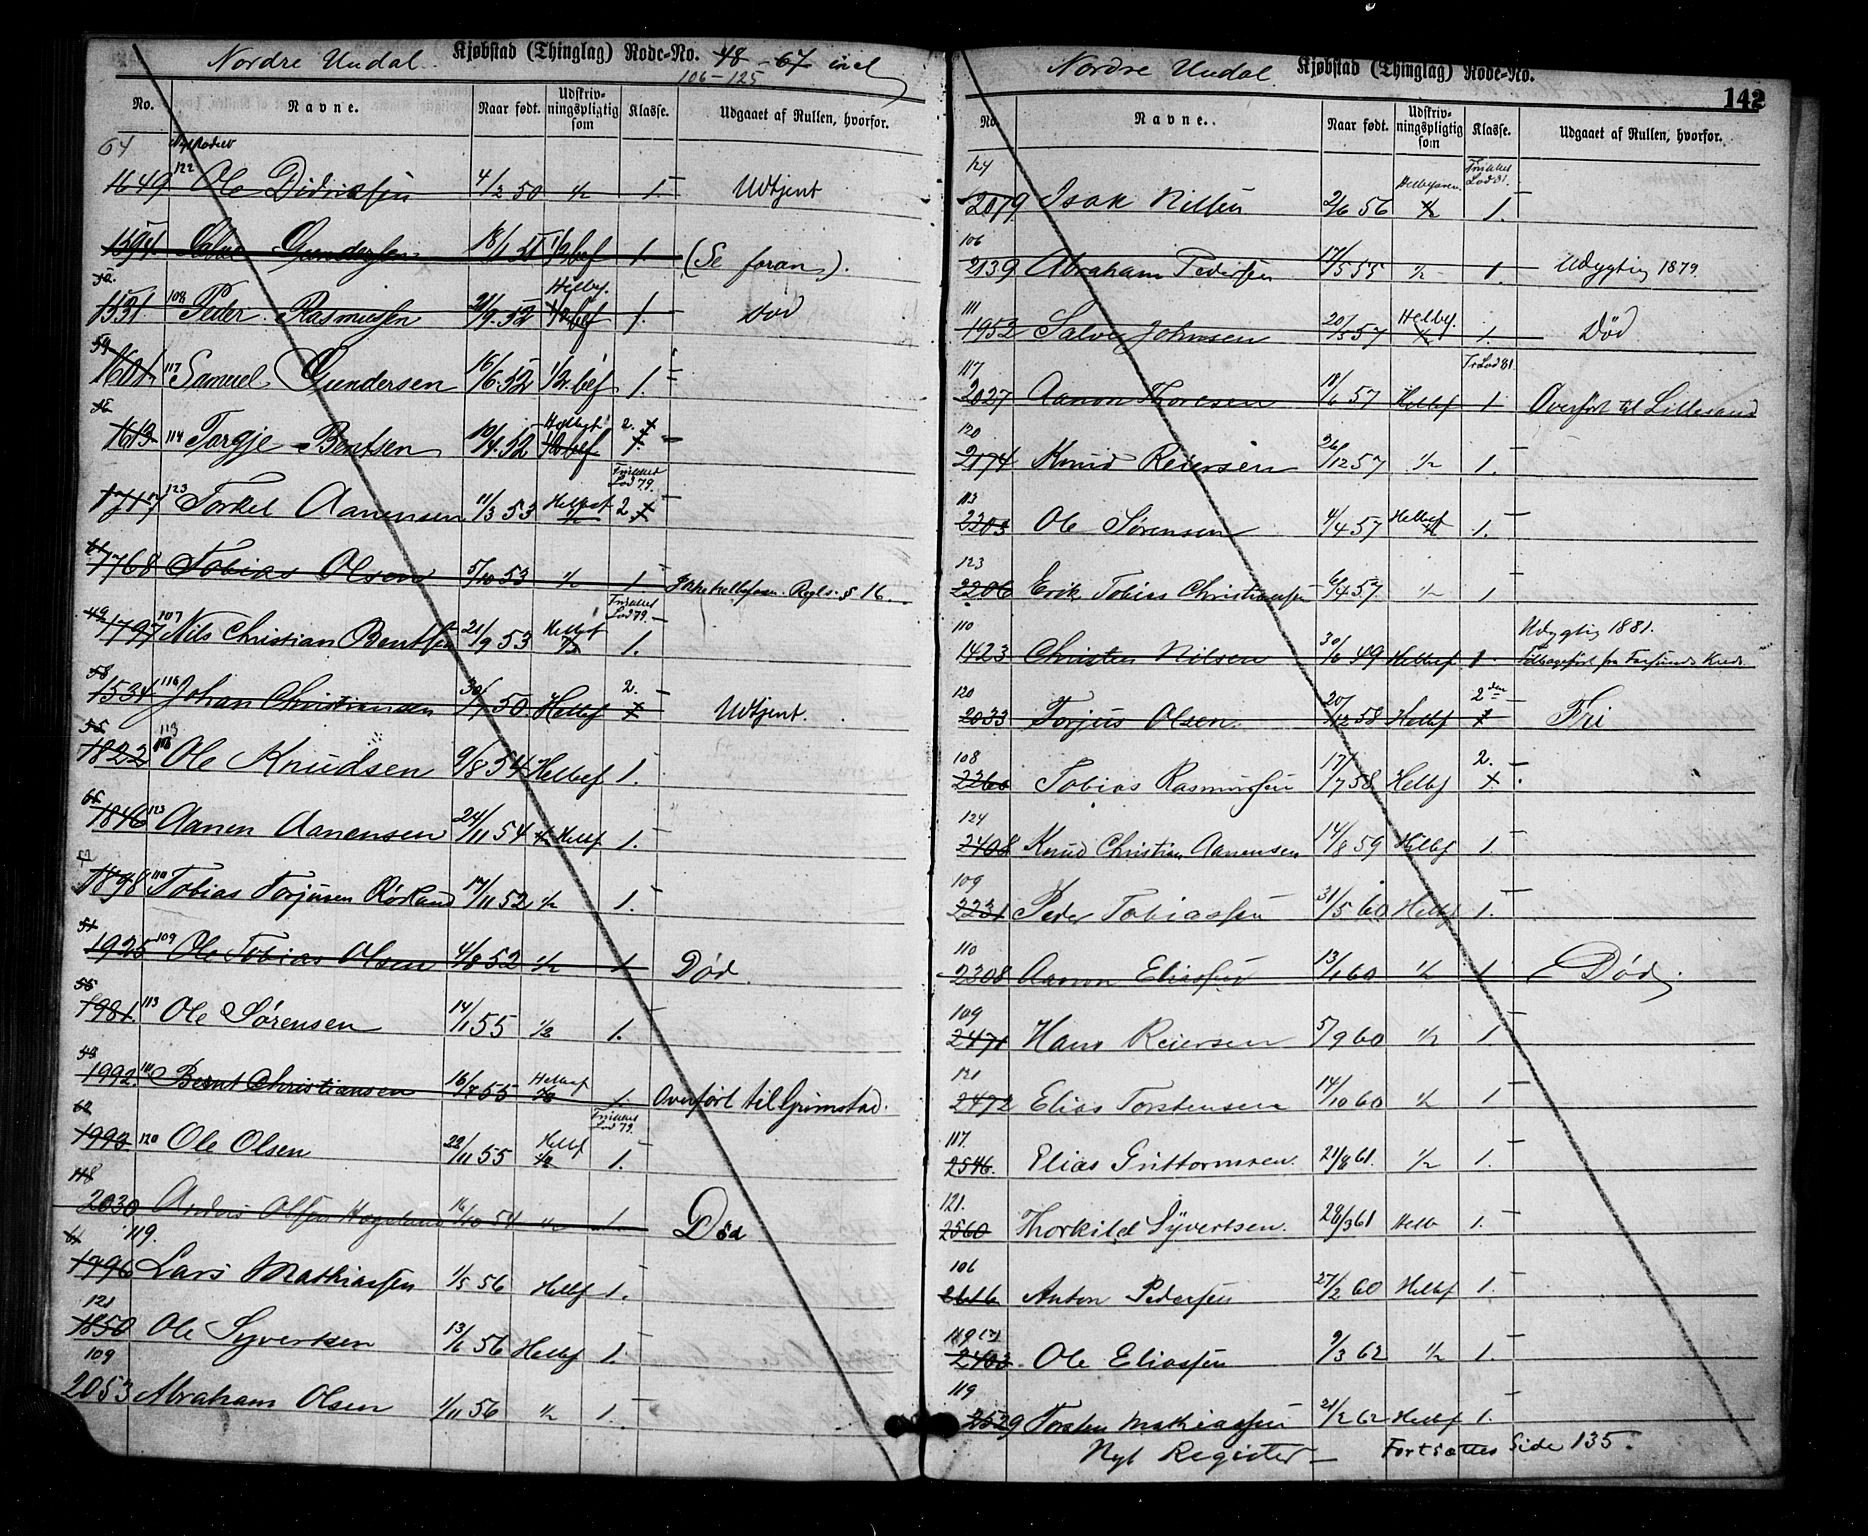 Nordre Undal. Kjøbstad (Thinglag) Rode-No. 48-67 incl
106-125
No. Navne. Naar født. Udskrivningspligtig som Klasse. Udgaaet af Rullen, hvorfor.
64
1649 122 Ole Didriksen 4/2 50 1/2 1. Udtjent
1594 Gundersen 18/1 51 1/2 bef 1. (Se foran).
52.
1531 108 Peder Rasmussen 21/9.52 Helbef. 1/2 bef 1. Død
59
1601 117 Samuel Gundersen 16/6.52 1/2 bef 1.
56
1613 114 Targje Bentsen 10/4.52 1/2 bef 2. 1.
Friskket Lod 79.
1717 123 Torkel Aanensen 11/3 53 Helbef 1/2 2 1
61
1768 Tobias Olsen 5/10 53 1/2 1 Regls. § 16.
Lod 79.
49
1797 107 Nils Christian Bentsen 21/9 53 Helbef 1/2 1.
58
1534 116 Johan Christiansen 30/1 50 Helbef 2. 1 Udtjent.
55 113
1822 Ole Knudsen 9/8 54 Helbef 1.
65
1816 123 Aanen Aanensen 24/11 54 1/2 Helbf 1.
1898 110 Tobias Torjusen Rörland 17/11 52 1/2 1.
51
1925 109 Ole Tobias Olsen 4/8 52 1/2 1 Død.
55
1981. 113 Ole Sørensen 14/11 55 1/2 1.
53
1992. 111 Bernt Christiansen 16/8 55 Helbef 1/2 1 Overført til Grimstad.
62
Lod 79.
1993. 120 Ole Olsen 22/11 55 Helbf 1/2 1.
118
2030 Anders Olsen 16/10 54 1/2 1. Død
61 119.
1996 Lars Mathiassen 1/5 56 Helbf 1.
121
1850 Ole Syvertsen 13/6 56 Helbf 1.
109
2053 Abraham Olsen 1/11 56 1/2 1.
Nordre Undal Kjøbstad (Thinglag) Rode-No.
142
No. Navne. Naar født. Udskrivningspligtig som Klasse. Udgaaet af Rullen, hvorfor.
124 Lod 81.
2019 Isak Nilsen 2/6 56 1/2 1.
106
2139 Abraham Pedersen 17/5 55 1/2 1. Udygtig 1879.
111
1952 Salve Johnsen 20/5 57 Helbef. 1/2 1. Død
117 Fr Lod 81.
2027 Aanon Thoresen 18/6 57 Helbef 1 Overført til Lillesand
120
2174 Knud Reiersen 26/12 57 1/2 1.
113
2203 Ole Sørensen 4/4 57 Helbef 1/2 1.
123
2206 Erik Tobias Christiansen 6/4 57 1/2 1
110 Udygtig 1881.
1423 Christen Nilsen 30/6 49 Helbef 1. Tilbageført fra Farsunds Kreds.
120
2033 Torjus Olsen 20/12 58 Helbf 2den 1 Fri
108
2260 Tobias Rasmussen 17/7 58 Helbf 2. 1
124
2408 Knud Christian Aanensen 14/8 59 Helbf 1.
109
2231 Peder Tobiassen 31/5 60 Helbf 1.
110
2308 Aanon Eliassen 13/1 60 1/2 1 Død.
109
2471 Hans Reiersen 5/9 60 1/2 1
121
2472 Elias Torstensen 14/10 60 1/2 1
117.
2546. Elias Guttormsen. 21/8 61. 1/2 1.
121.
2560 Thorkild Syvertsen. 28/3 61 Helb 1.
106
2616 Anton Pedersen 27/2 60 Helbf 1.
119
2403. Ole Eliassen 9/3 62 1/2 1.
119
2529 Torsten Mathiassen 21/2 62 Helbf 1.
Nyt Register — Fortsættes Side 135.